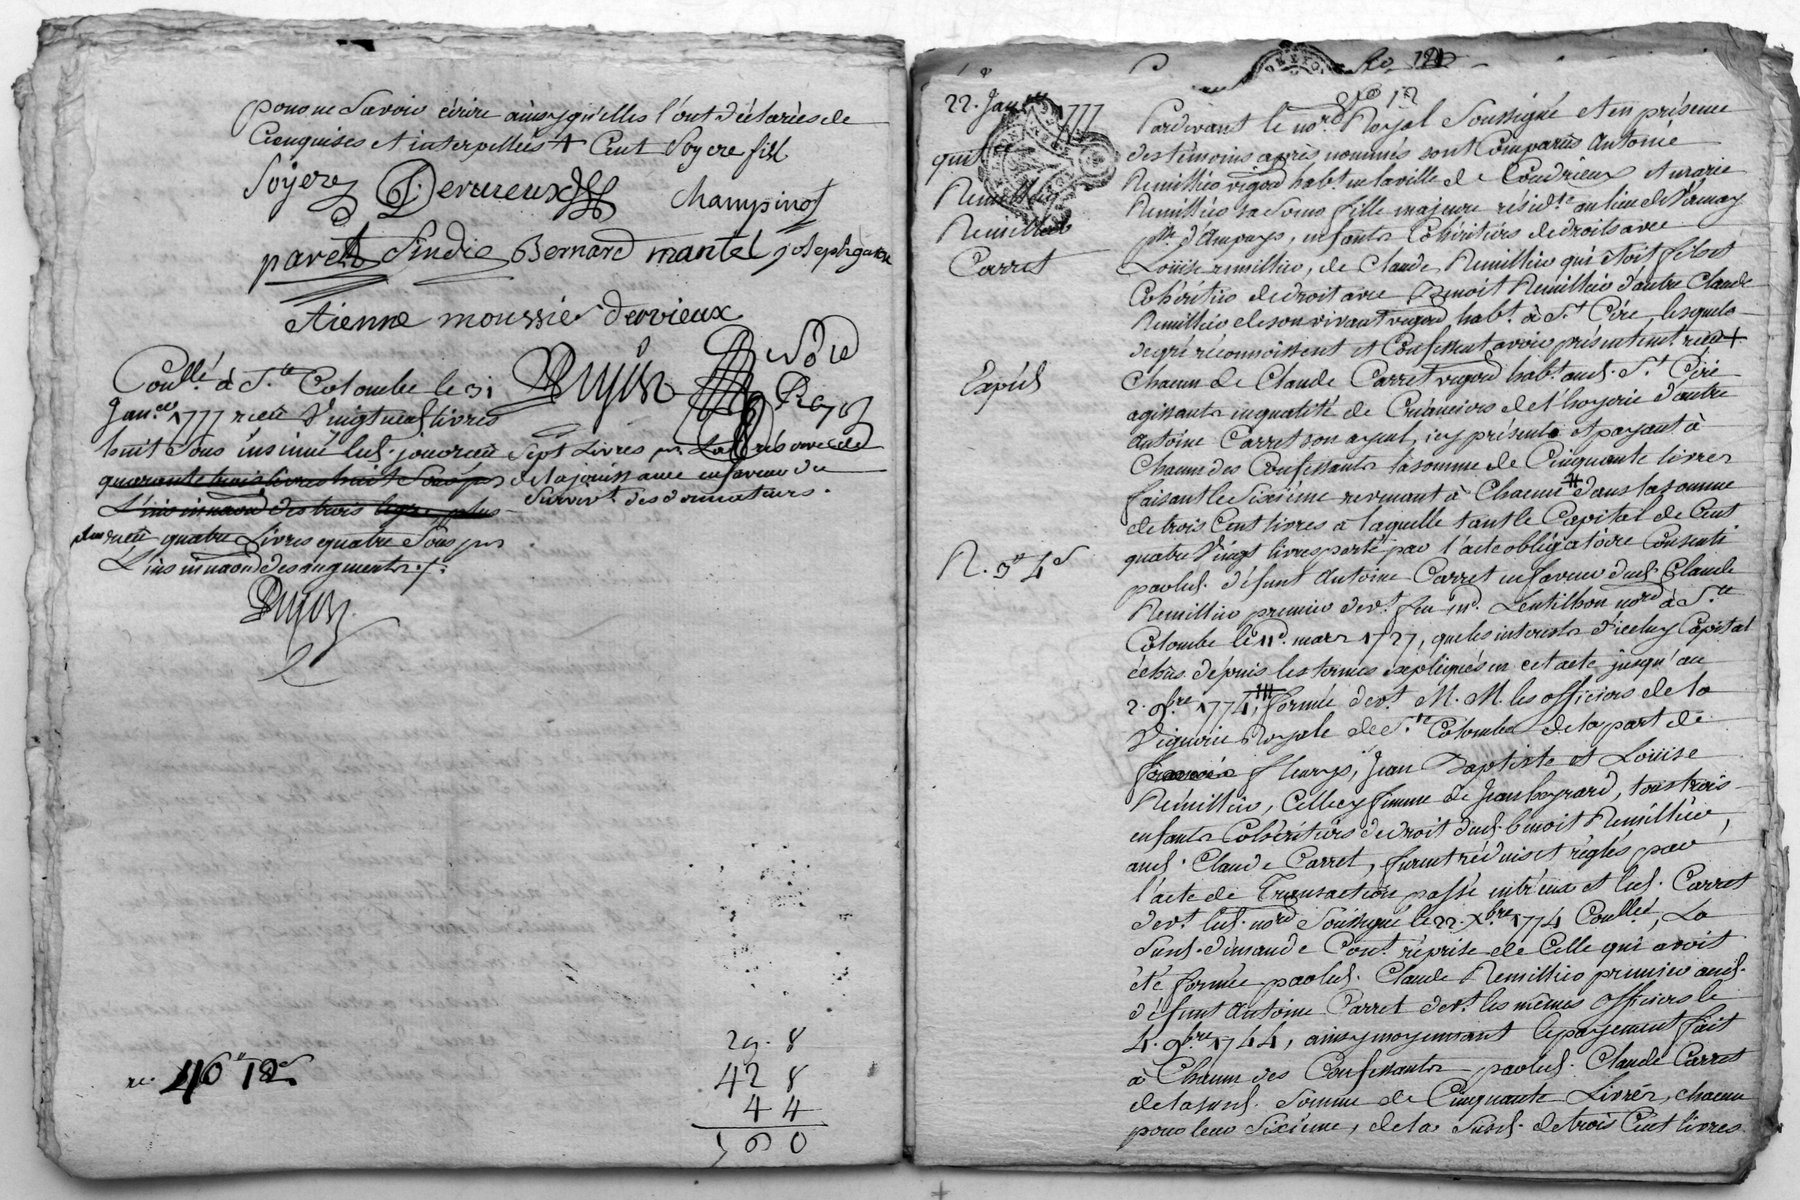 pour ne Savoir écrire ainsy qu'elles l'ont déclaré de
Ce enquises et interpellées + Cent Soyere fils
Soyere Dervieux Champin
paret Sindic Bernard mantel joseph garon
Etienne moussier dervieux
Conllé à Ste Colombe le 31
Janer 1777 reçu Vingt neuf livres
huit Sous insinué led. jour reçu Sept Livres pr
quarante trois livres huit Sous pr de la jouissance en faveur du
L'insinuaon des trois legs plus Survivt des donnateurs.
plus reçu quatre Livres quatre Sous pr
L'insinuaon des augments
Dujon
29. 8
42 8
4 4
re. 46" 12s
22. Janer 1777
quittce
Remillier
Remillier
Carret
Expéd
R. 3" 4s
Pardevant le nore Royal Soussigné et en présence
des témoins après nommés sont Comparus Antoine
Remillier vigon habt en la ville de Condrieux et marie
Remillier sa soeur fille majeure résidte au lieu de Vernay
psse d'Ampuys, enfants Cohéritiers de droit avec
Louise remillier, de Claude Remillier qui étoit fils et
Cohéritier de droit avec Benoit Remillier d'autre Claude
Remillier de son vivant vigon habt à St Cire, lesquels
de gré reconnoissent et Confessent avoir présentement reçu +
Chacun de Claude Carret vigon habt aud. St Cire
agissants en qualité de Créanciers de l'hoyerie d'autre
Antoine Carret son ayeul, icy présent et payant à
Chacun des Confessants la somme de Cinquante livres
faisant le Sixième revenant à Chacun # dans la somme
de trois Cent livres à laquelle tant le Capital de Cent
quatre Vingt livres porté par l'acte obligatoire Consenti
par led. défunt Antoine Carret en faveur dud. Claude
Remillier premier devt feu me. Lentillon nore à Ste
Colombe le 11e. mars 1727, que les interests d'icelluy Capital
échus depuis les termes expliqués en cet acte jusqu'au
2. 9bre 1774, formée devt M. M. les officiers de la
Viguerie Royale de Ste Colombe de la part de
fleury, Jean Baptiste et Louise
Remillier, Celle cy femme de Jean boyrard, tous trois
enfants Cohéritiers de droit dud. benoit Remillier,
aud. Claude Carret, furent réduis et réglés par
l'acte de Transaction passé entr'eux et led. Carret
devt led. nore Soussigné le 22. Xbre 1774 Conllé, La
Susd. demande Cont. réprise de Celle qui avoit
été formée par led. Claude Remillier premier aud.
défunt Antoine Carret devt les mêmes Officiers le
4. 9bre 1744, ainsy moyennant le payement fait
à Chacun des Confessants par led. Claude Carret
de la susd. Somme de Cinquante Livres, chacun
pour leur Sixième, de la Susd. de trois Cent livres